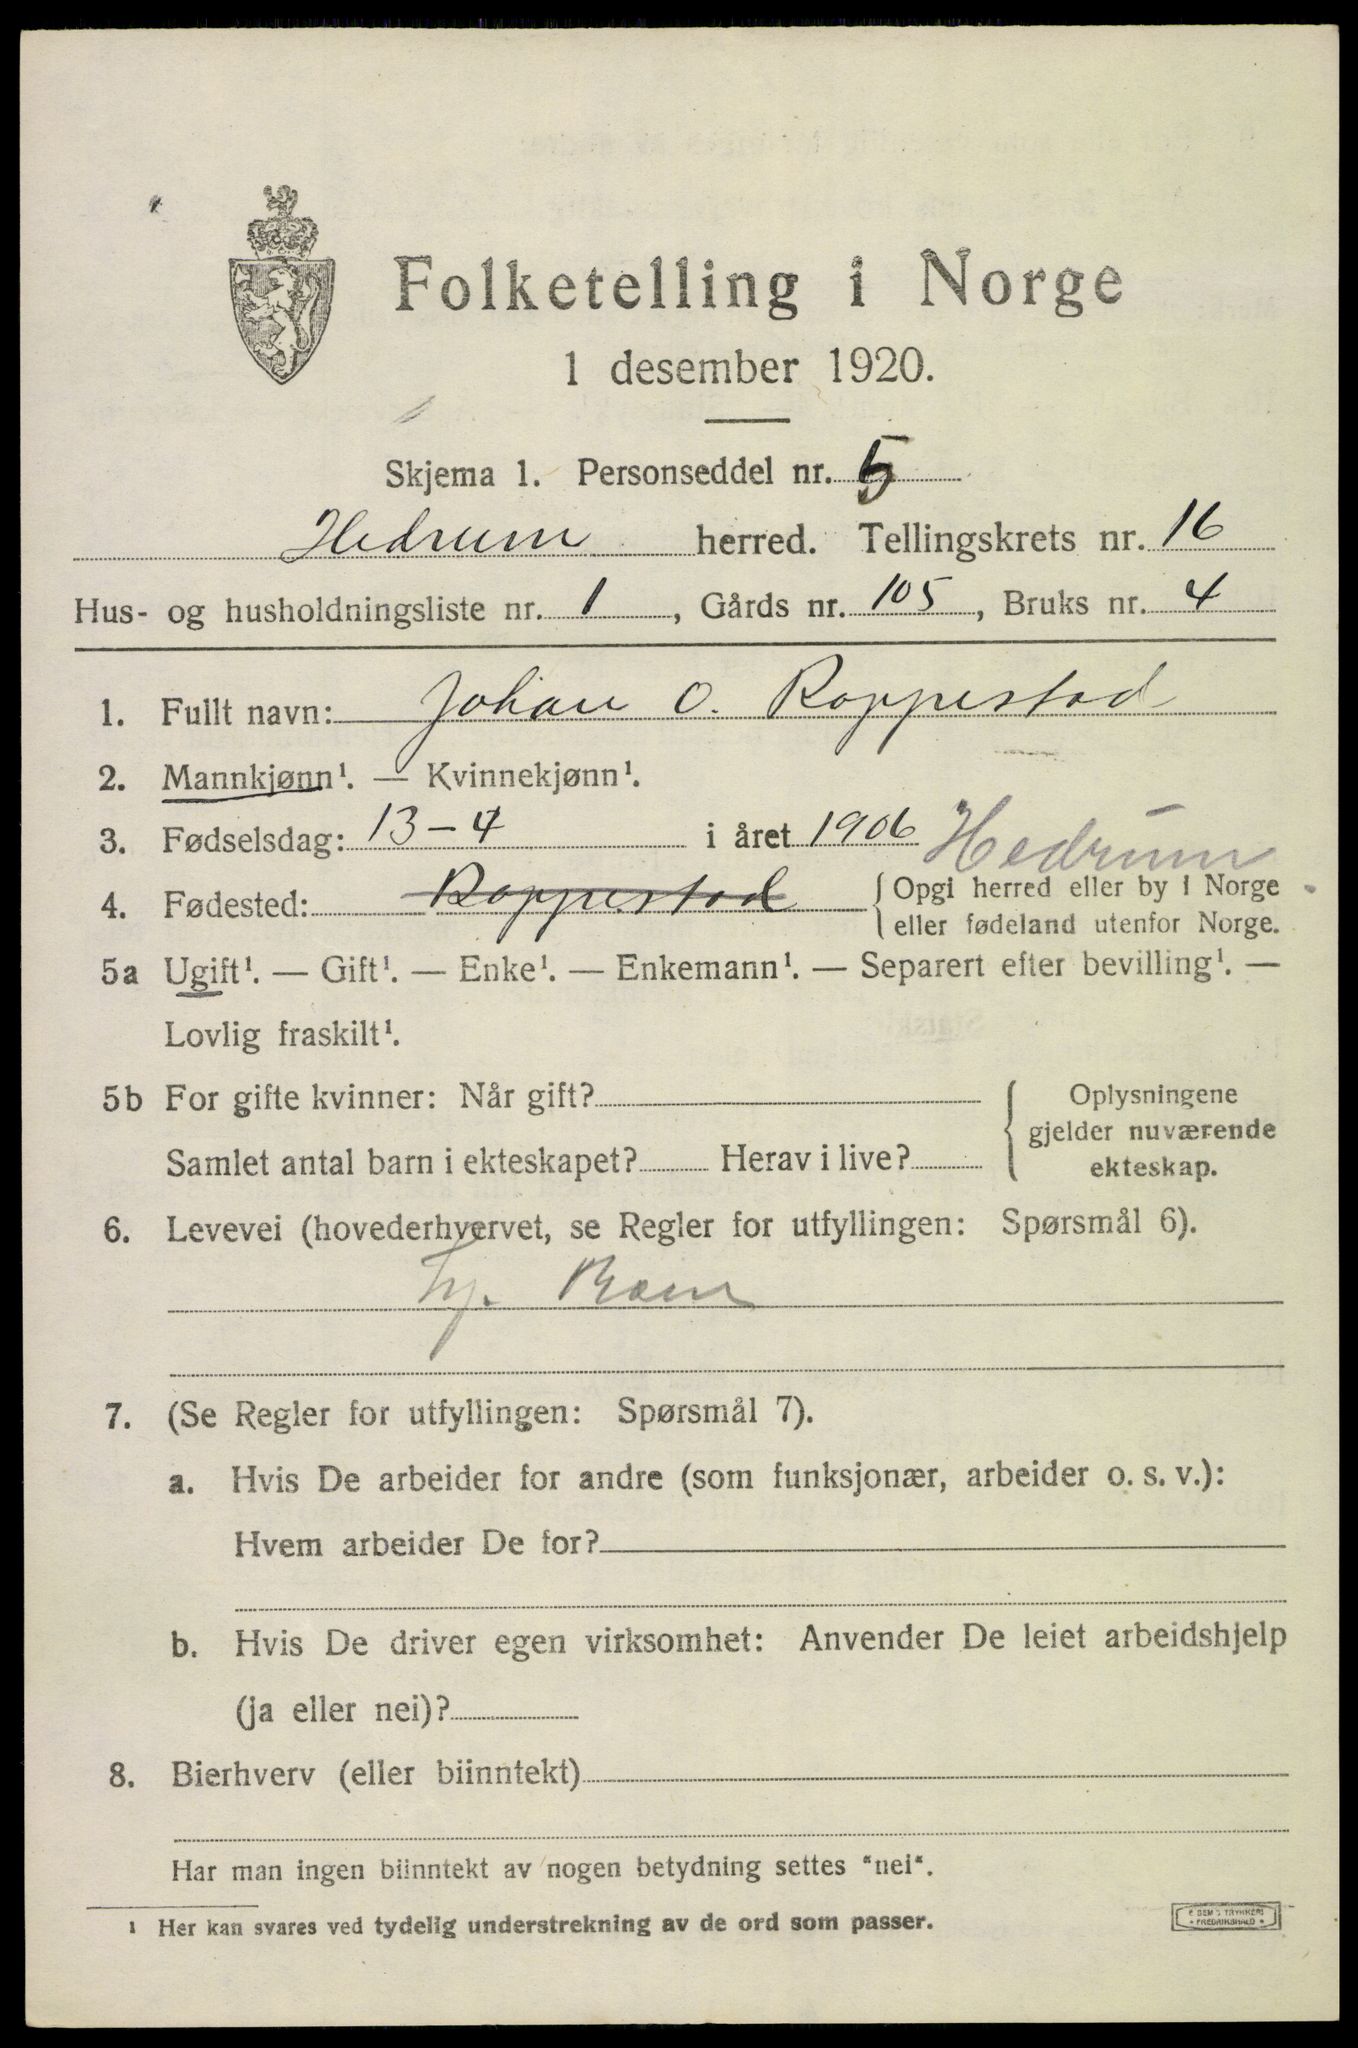 Folketelling i Norge
1 desember 1920.
Skjema 1. Personseddel nr. 5
Hedrum herred. Tellingskrets nr. 16
Hus- og husholdningsliste nr. 1, Gårds nr. 105, Bruks nr. 4
1. Fullt navn: Johan O. Roppestad
2. Mannkjønn¹. — Kvinnekjønn¹.
3. Fødselsdag: 13-4 i året 1906 Hedrum
4. Fødested: Roppestad {Opgi herred eller by i Norge
eller fødeland utenfor Norge.
5a Ugift¹. — Gift¹. — Enke¹. — Enkemann¹. — Separert efter bevilling¹. —
Lovlig fraskilt¹.
5b For gifte kvinner: Når gift? {Oplysningene
gjelder nuværende
Samlet antal barn i ekteskapet? Herav i live? ekteskap.
6. Levevei (hovederhvervet, se Regler for utfyllingen: Spørsmål 6).
7. (Se Regler for utfyllingen: Spørsmål 7).
a. Hvis De arbeider for andre (som funksjonær, arbeider o. s. v.):
Hvem arbeider De for?
b. Hvis De driver egen virksomhet: Anvender De leiet arbeidshjelp
(ja eller nei)?
8. Bierhverv (eller biinntekt)
Har man ingen biinntekt av nogen betydning settes "nei".
¹ Her kan svares ved tydelig understrekning av de ord som passer.